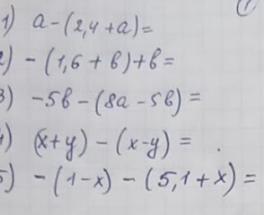 1) a-(2,4+a)=
2) -(1,6+в)+в=
3) -5в-(8a-5в)=
4) (x+y)-(x-y)=
5) -(1-x)-(5,1+x)=